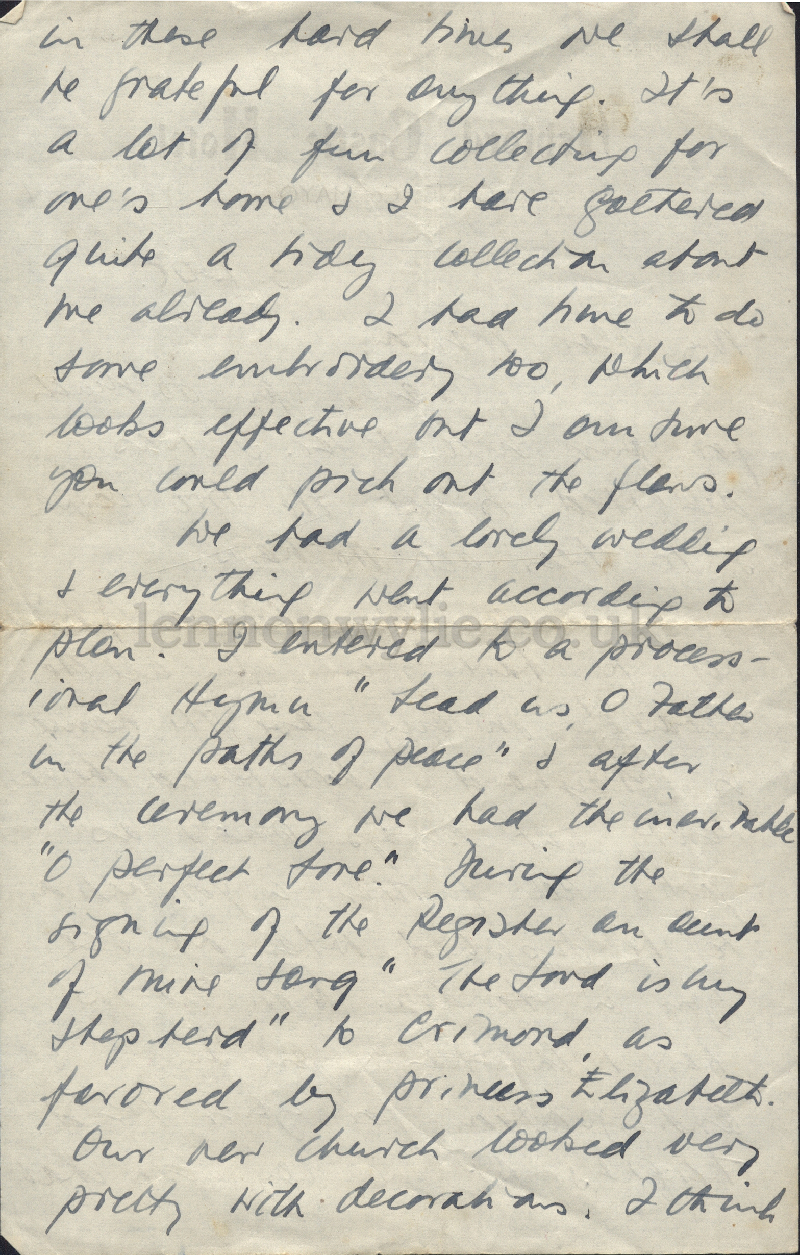 in these hard times we shall
be grateful for anything. It's
a lot of fun collecting for
one's home & I have gathered
quite a tidy collection about
me already. I had time to do
some embroidery too, which
looks effective but I am sure
you could pick out the flaws.
We had a lovely wedding
& everything went according to
plan. I entered to a process-
ional Hymn "Lead us, O Father
in the paths of peace" & after
the ceremony we had the inevitable
"O perfect Love." During the
signing of the Register an aunt
of mine sang "The Lord is my
Shepherd" to Crimond, as
favored by Princess Elizabeth.
Our new church looked very
pretty with decorations. I think
lennonwylie.co.uk